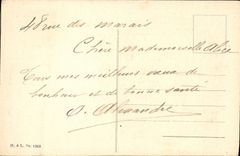 48 rue des marais
Chère Mademoiselle Alice
Tous mes meilleurs vœux de
bonheur et de bonne santé
Alexandre